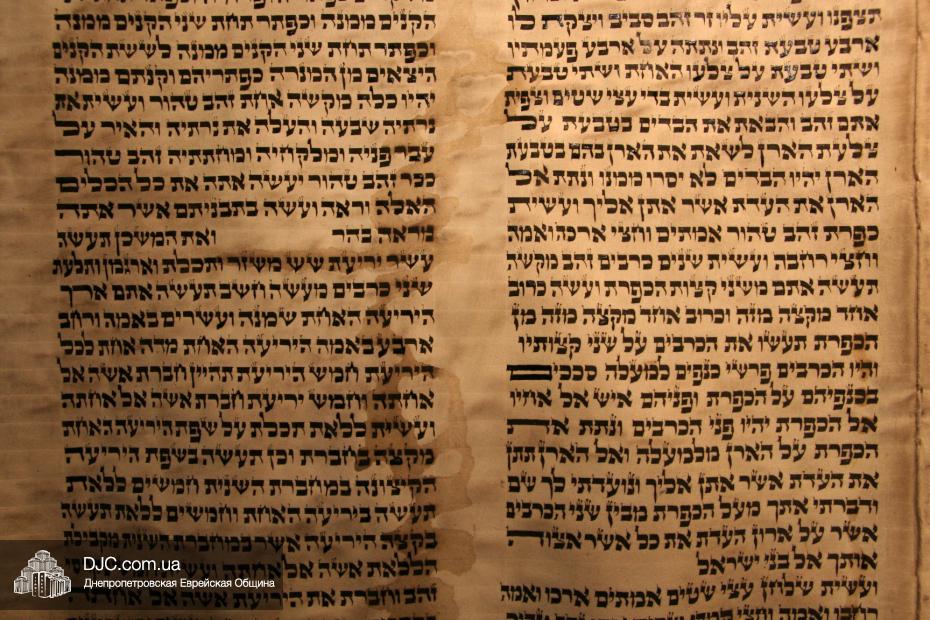 תצפנו ועשית עליו זר זהב סביב ויצקת לו
ארבע טבעת זהב ונתתה על ארבע פעמתיו
ושתי טבעת על צלעו האחת ושתי טבעת
על צלעו השנית ועשית בדי עצי שטים וצפית
אתם זהב והבאת את הבדים בטבעת על
צלעת הארן לשאת את הארן בהם בטבעת
הארן יהיו הבדים לא יסרו ממנו ונתת אל
הארן את העדת אשר אתן אליך ועשית
כפרת זהב טהור אמתים וחצי ארכה ואמה
וחצי רחבה ועשית שנים כרבים זהב מקשה
תעשה אתם משני קצות הכפרת ועשה כרוב
אחד מקצה מזה וכרוב אחד מקצה מזה מן
הכפרת תעשו את הכרבים על שני קצותיו
והיו הכרבים פרשי כנפים למעלה סככים
בכנפיהם על הכפרת ופניהם איש אל אחיו
אל הכפרת יהיו פני הכרבים ונתת את
הכפרת על הארן מלמעלה ואל הארן תתן
את העדת אשר אתן אליך ונועדתי לך שם
ודברתי אתך מעל הכפרת מבין שני הכרבים
אשר על ארון העדת את כל אשר אצוה
אותך אל בני ישראל
ועשית שלחן עצי שטים אמתים ארכו ואמה
רחבו ואמה וחצי
הקנים ממנה וכפתר תחת שני הקנים ממנה
וכפתר תחת שני הקנים ממנה לששת הקנים
היצאים מן המנרה כפתריהם וקנתם ממנה
יהיו כלה מקשה אחת זהב טהור ועשית את
נרתיה שבעה והעלה את נרתיה והאיר על
עבר פניה ומלקחיה ומחתתיה זהב טהור
ככר זהב טהור יעשה אתה את כל הכלים
האלה וראה ועשה בתבניתם אשר אתה
מראה בהר ואת המשכן תעשה
עשר יריעת שש משזר ותכלת וארגמן ותלעת
שני כרבים מעשה חשב תעשה אתם ארך
היריעה האחת שמנה ועשרים באמה ורחב
ארבע באמה היריעה האחת מדה אחת לכל
היריעת חמש היריעת תהיין חברת אשה אל
אחתה וחמש יריעת חברת אשה אל אחתה
ועשית ללאת תכלת על שפת היריעה האחת
מקצה בחברת וכן תעשה בשפת היריעה
הקיצונה במחברת השנית חמשים ללאת
תעשה ביריעה האחת וחמשים ללאת תעשה
בקצה היריעה אשר במחברת השנית מקבילת
הללאת אשה אל אחתה
זהב וחברת את היריעת אשה אל אחתה
DJC.com.ua
Днепропетровская Еврейская Община